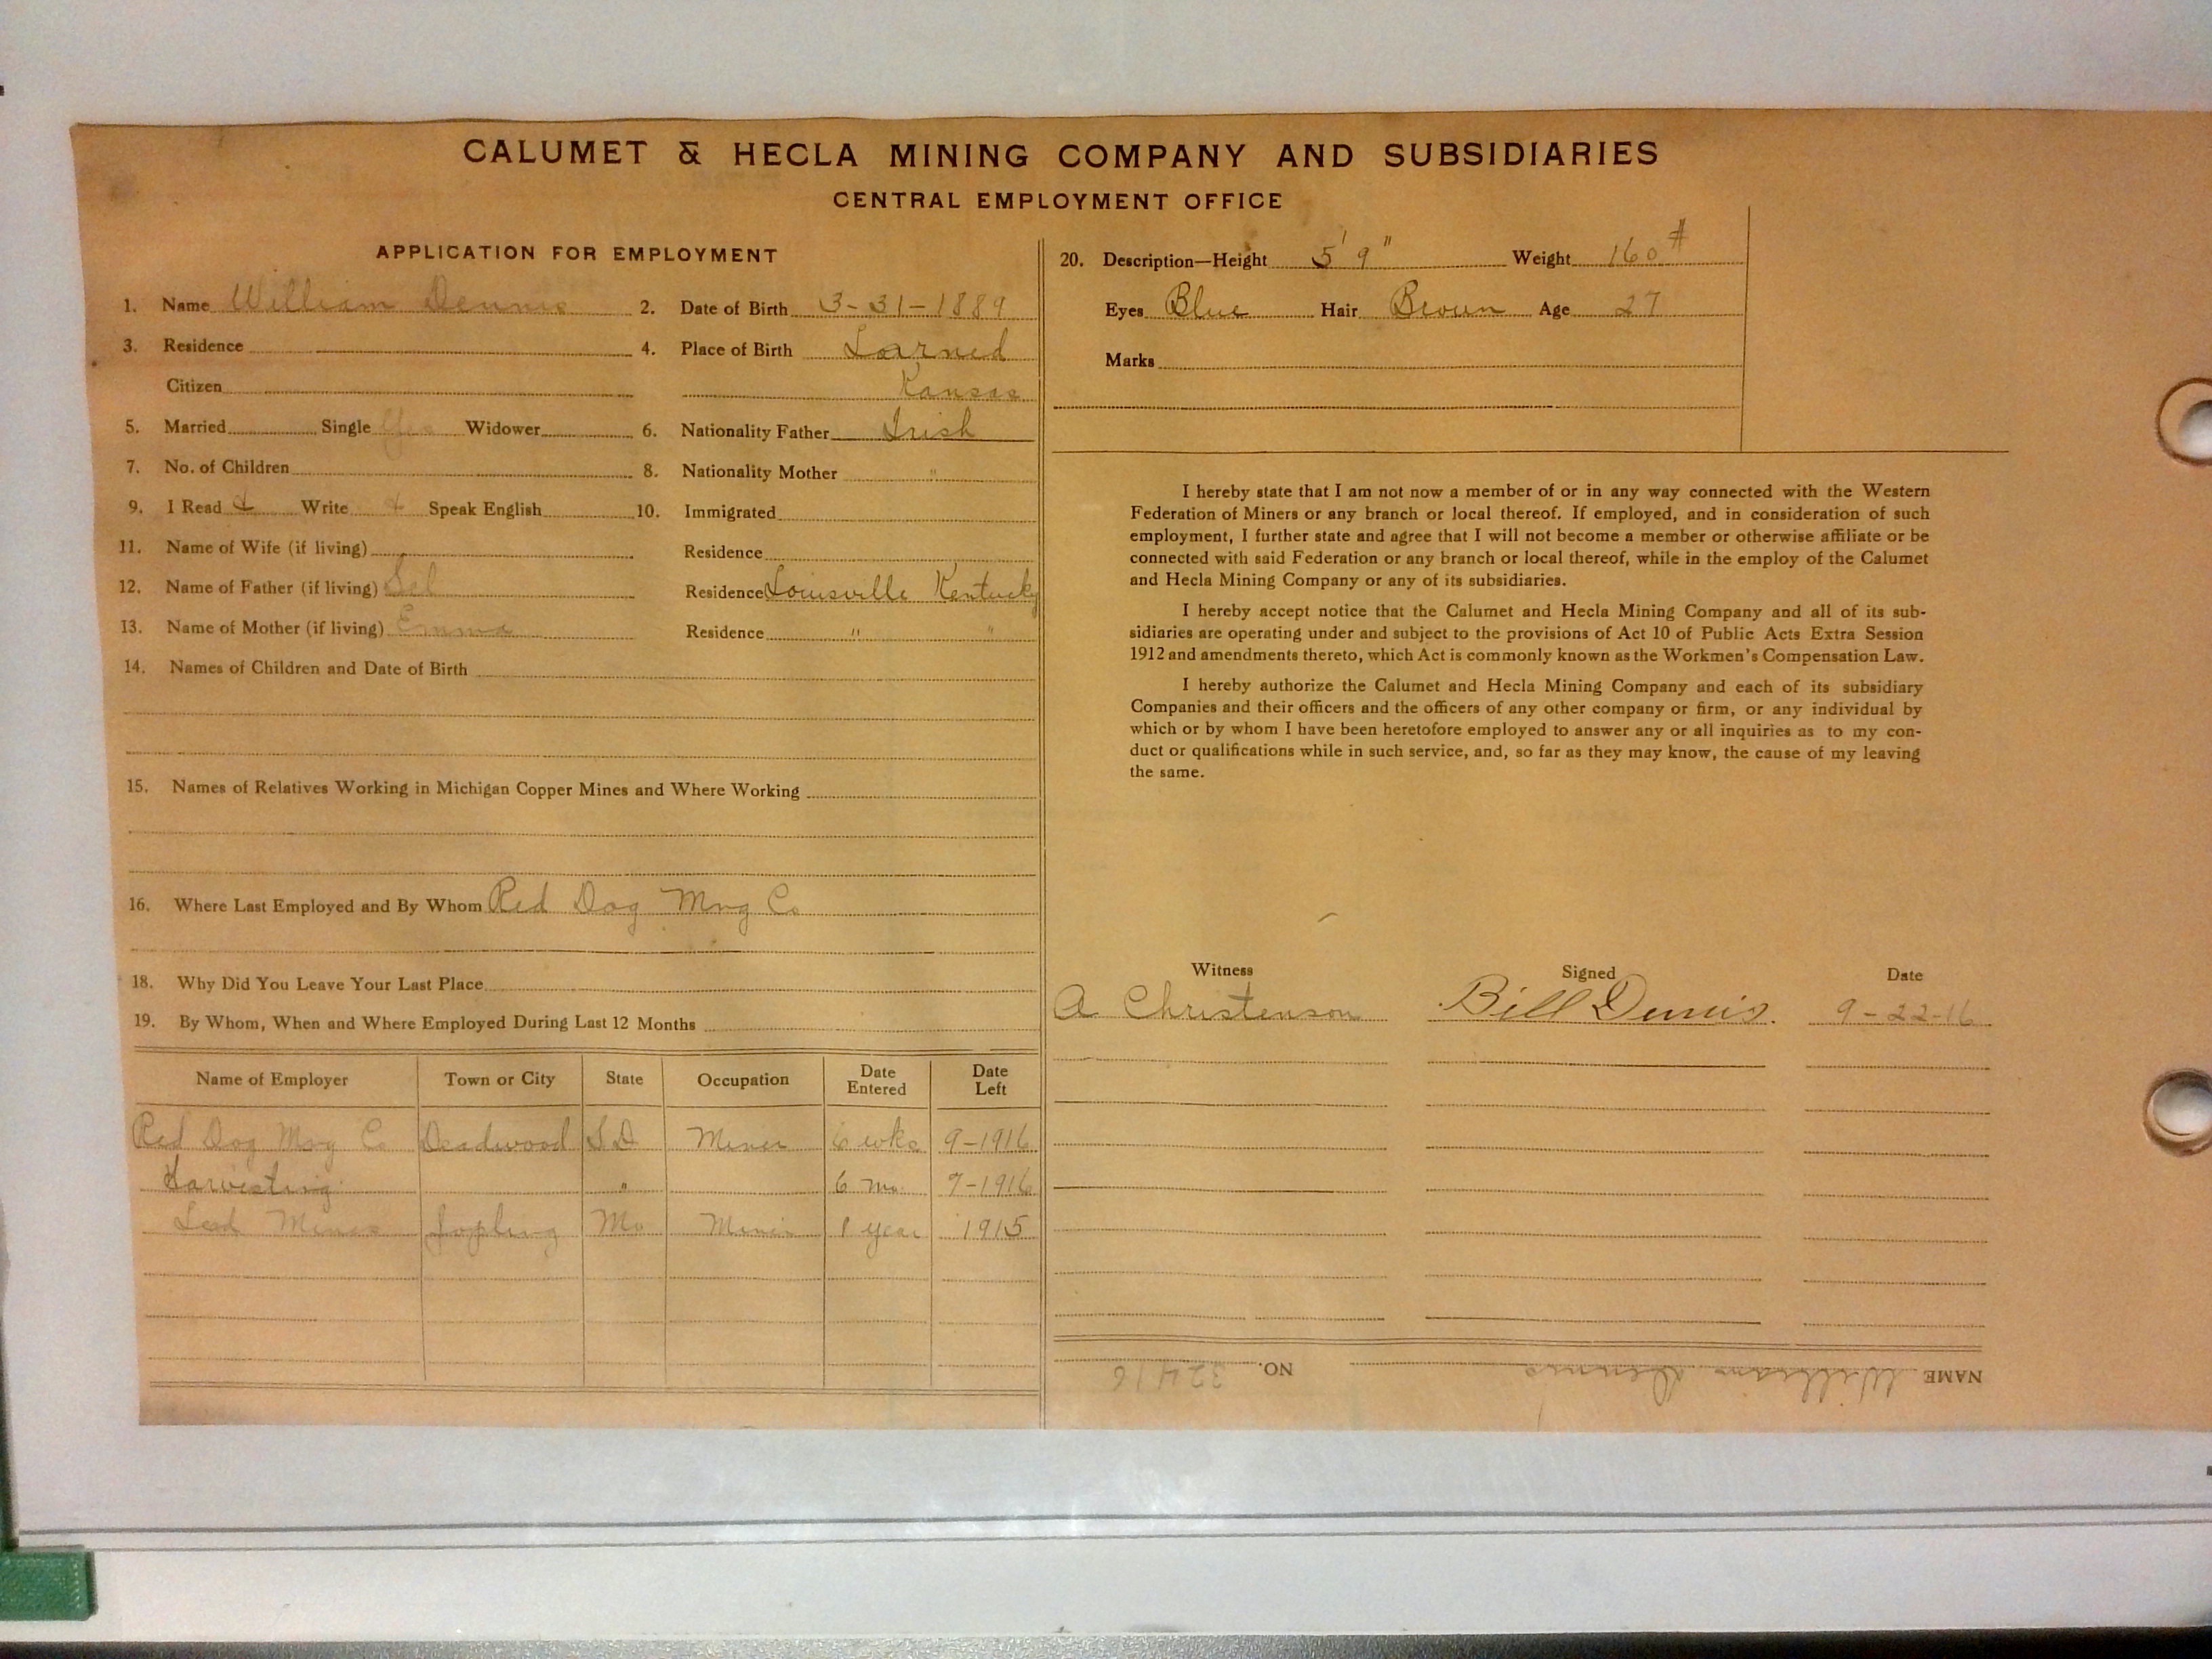 CALUMET & HECLA MINING COMPANY AND SUBSIDIARIES
CENTRAL EMPLOYMENT OFFICE
APPLICATION FOR EMPLOYMENT
1. Name William Dennis 2. Date of Birth 3-31-1889
3. Residence 4. Place of Birth Larned
Citizen Kansas
5. Married Single Yes Widower 6. Nationality Father Irish
7. No. of Children 8. Nationality Mother "
9. I Read & Write & Speak English 10. Immigrated
11. Name of Wife (if living) Residence
12. Name of Father (if living) Residence Louisville Kentucky
13. Name of Mother (if living) Emma Residence " "
14. Names of Children and Date of Birth
15. Names of Relatives Working in Michigan Copper Mines and Where Working
16. Where Last Employed and By Whom Red Dog Mng Co
18. Why Did You Leave Your Last Place
19. By Whom, When and Where Employed During Last 12 Months
Name of Employer Town or City State Occupation Date Entered Date Left
Red Dog Mng Co Deadwood S.D. Miner 6 wks 9-1916
Harvesting " 6 mo. 7-1916
Lead Mines Jopling Mo Miner 1 year 1915
20. Description—Height 5' 9" Weight 160 #
Eyes Blue Hair Brown Age 27
Marks
I hereby state that I am not now a member of or in any way connected with the Western
Federation of Miners or any branch or local thereof. If employed, and in consideration of such
employment, I further state and agree that I will not become a member or otherwise affiliate or be
connected with said Federation or any branch or local thereof, while in the employ of the Calumet
and Hecla Mining Company or any of its subsidiaries.
I hereby accept notice that the Calumet and Hecla Mining Company and all of its sub-
sidiaries are operating under and subject to the provisions of Act 10 of Public Acts Extra Session
1912 and amendments thereto, which Act is commonly known as the Workmen's Compensation Law.
I hereby authorize the Calumet and Hecla Mining Company and each of its subsidiary
Companies and their officers and the officers of any other company or firm, or any individual by
which or by whom I have been heretofore employed to answer any or all inquiries as to my con-
duct or qualifications while in such service, and, so far as they may know, the cause of my leaving
the same.
Witness Signed Date
A Christenson Bill Dennis. 9-22-16
NAME William Dennis NO. 32416